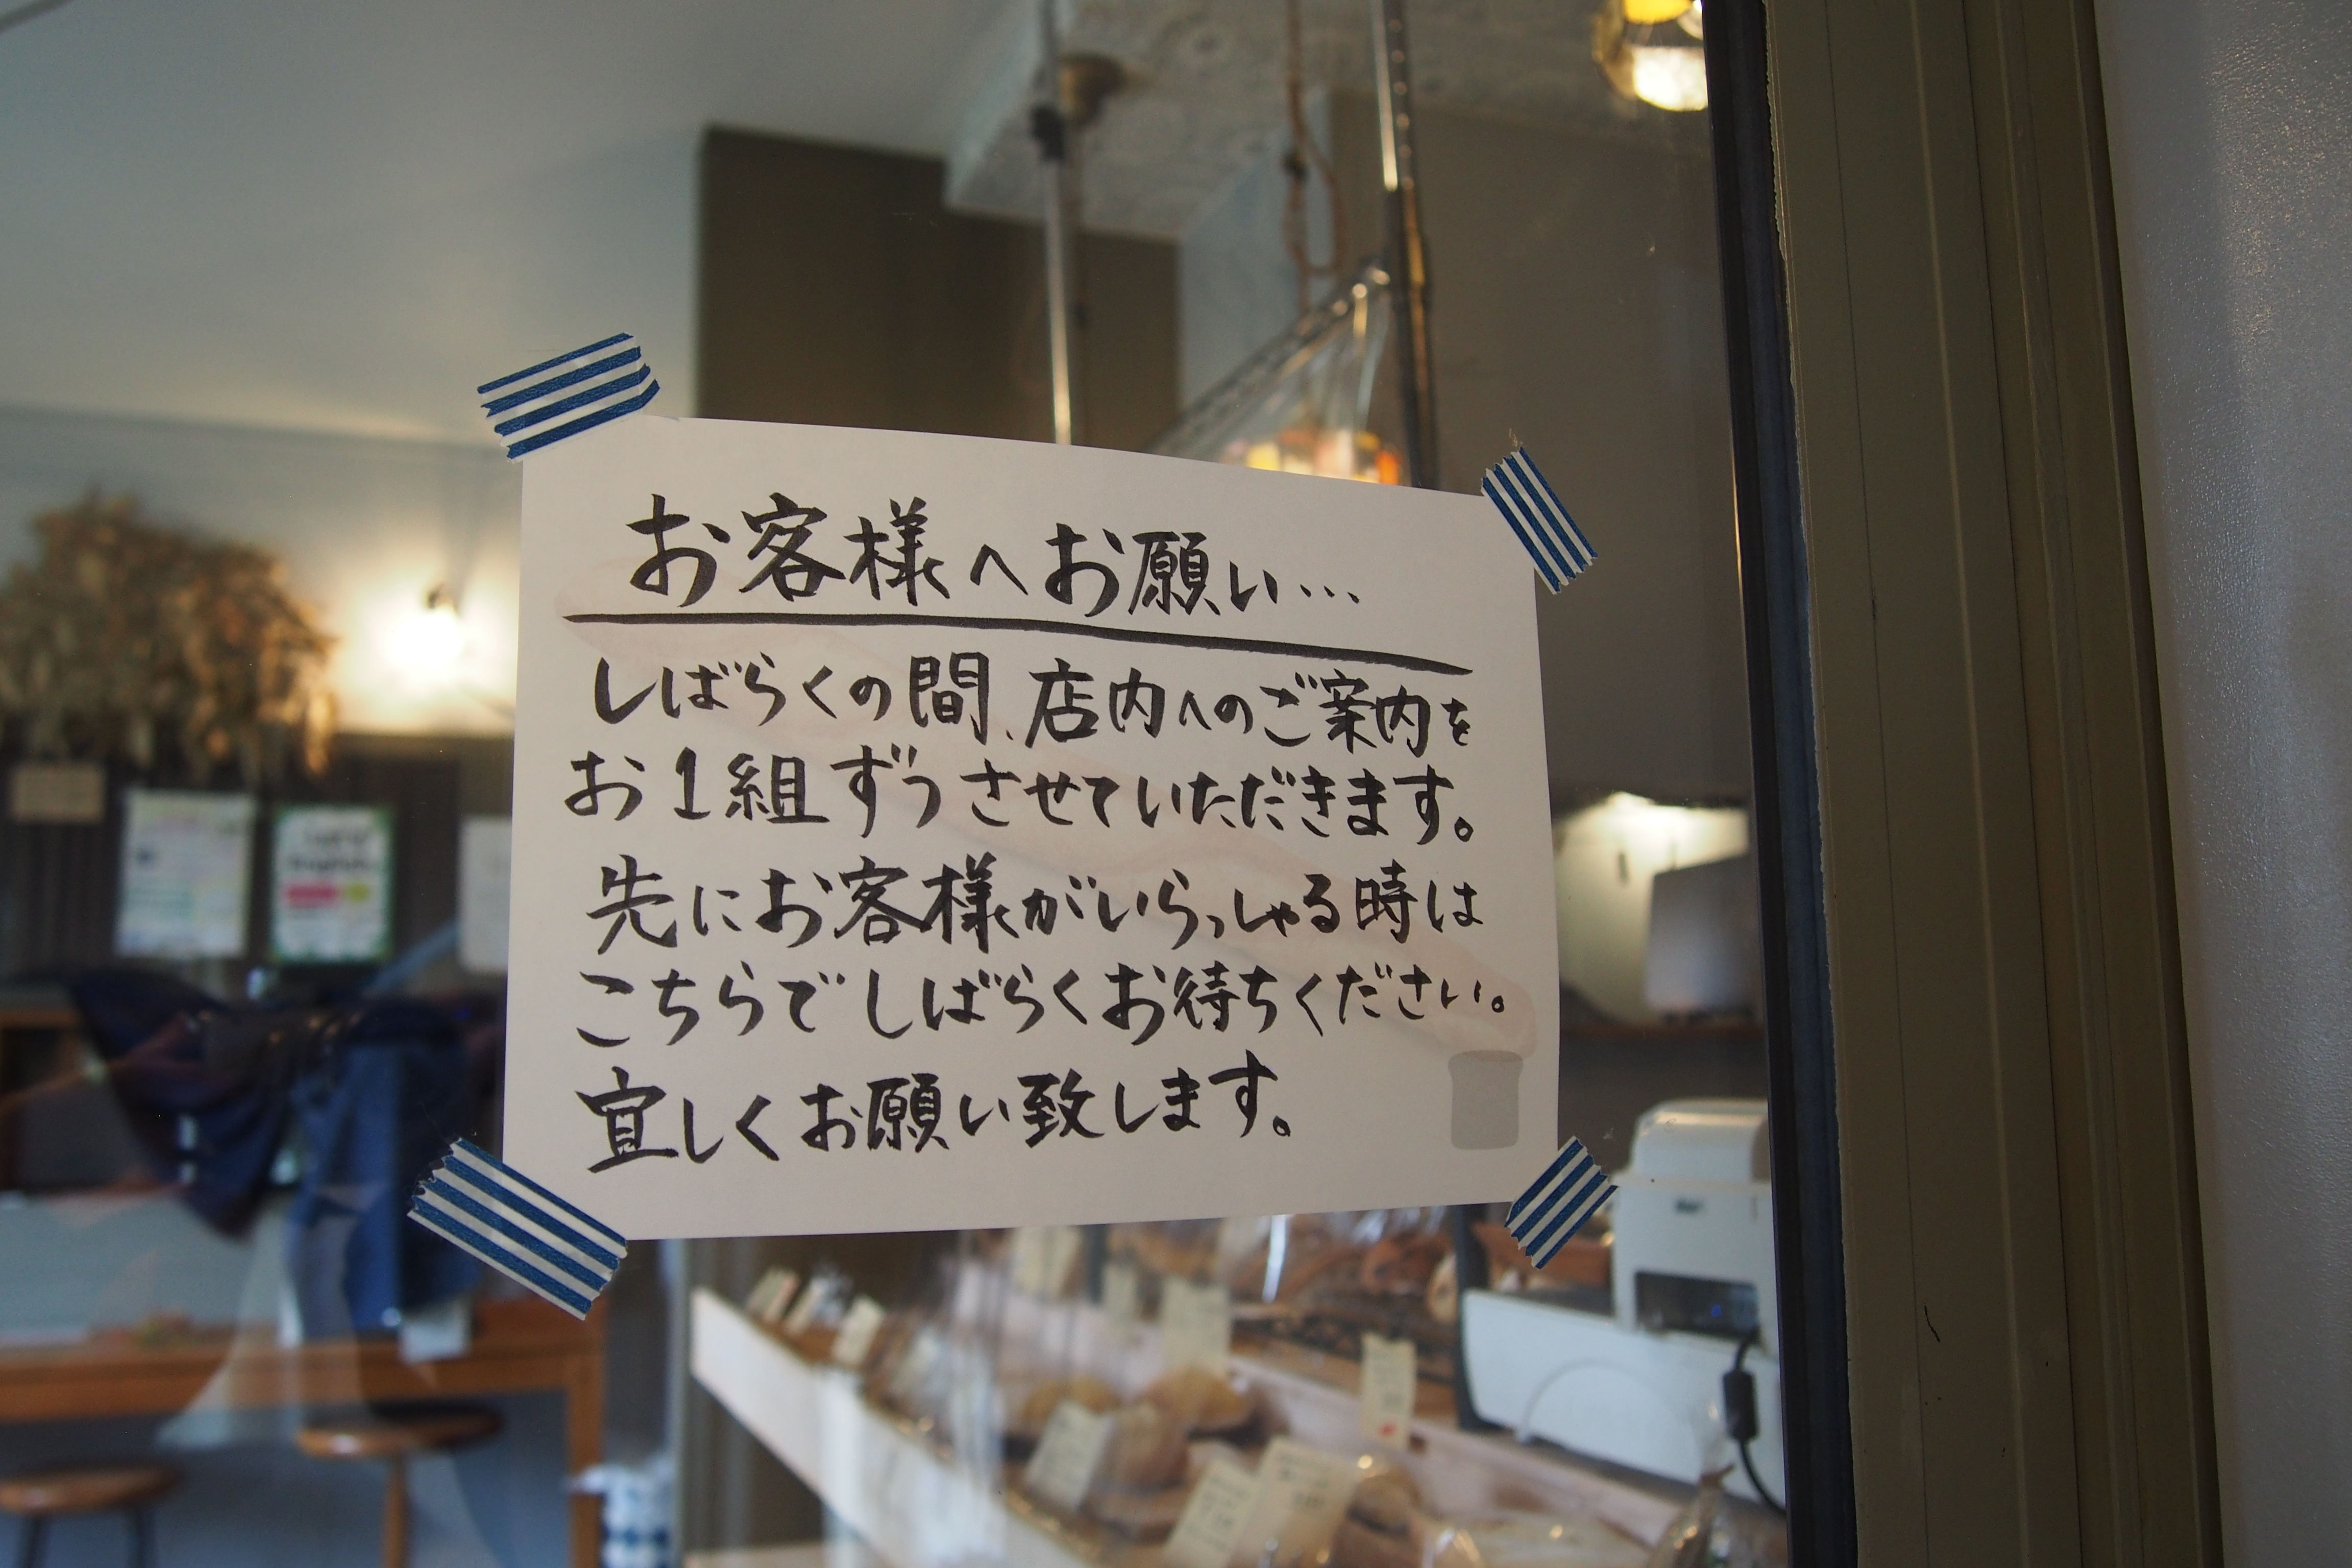 お客様へお願い…
しばらくの間、店内へのご案内を
お1組ずつさせていただきます。
先にお客様がいらっしゃる時は
こちらでしばらくお待ちください。
宜しくお願い致します。